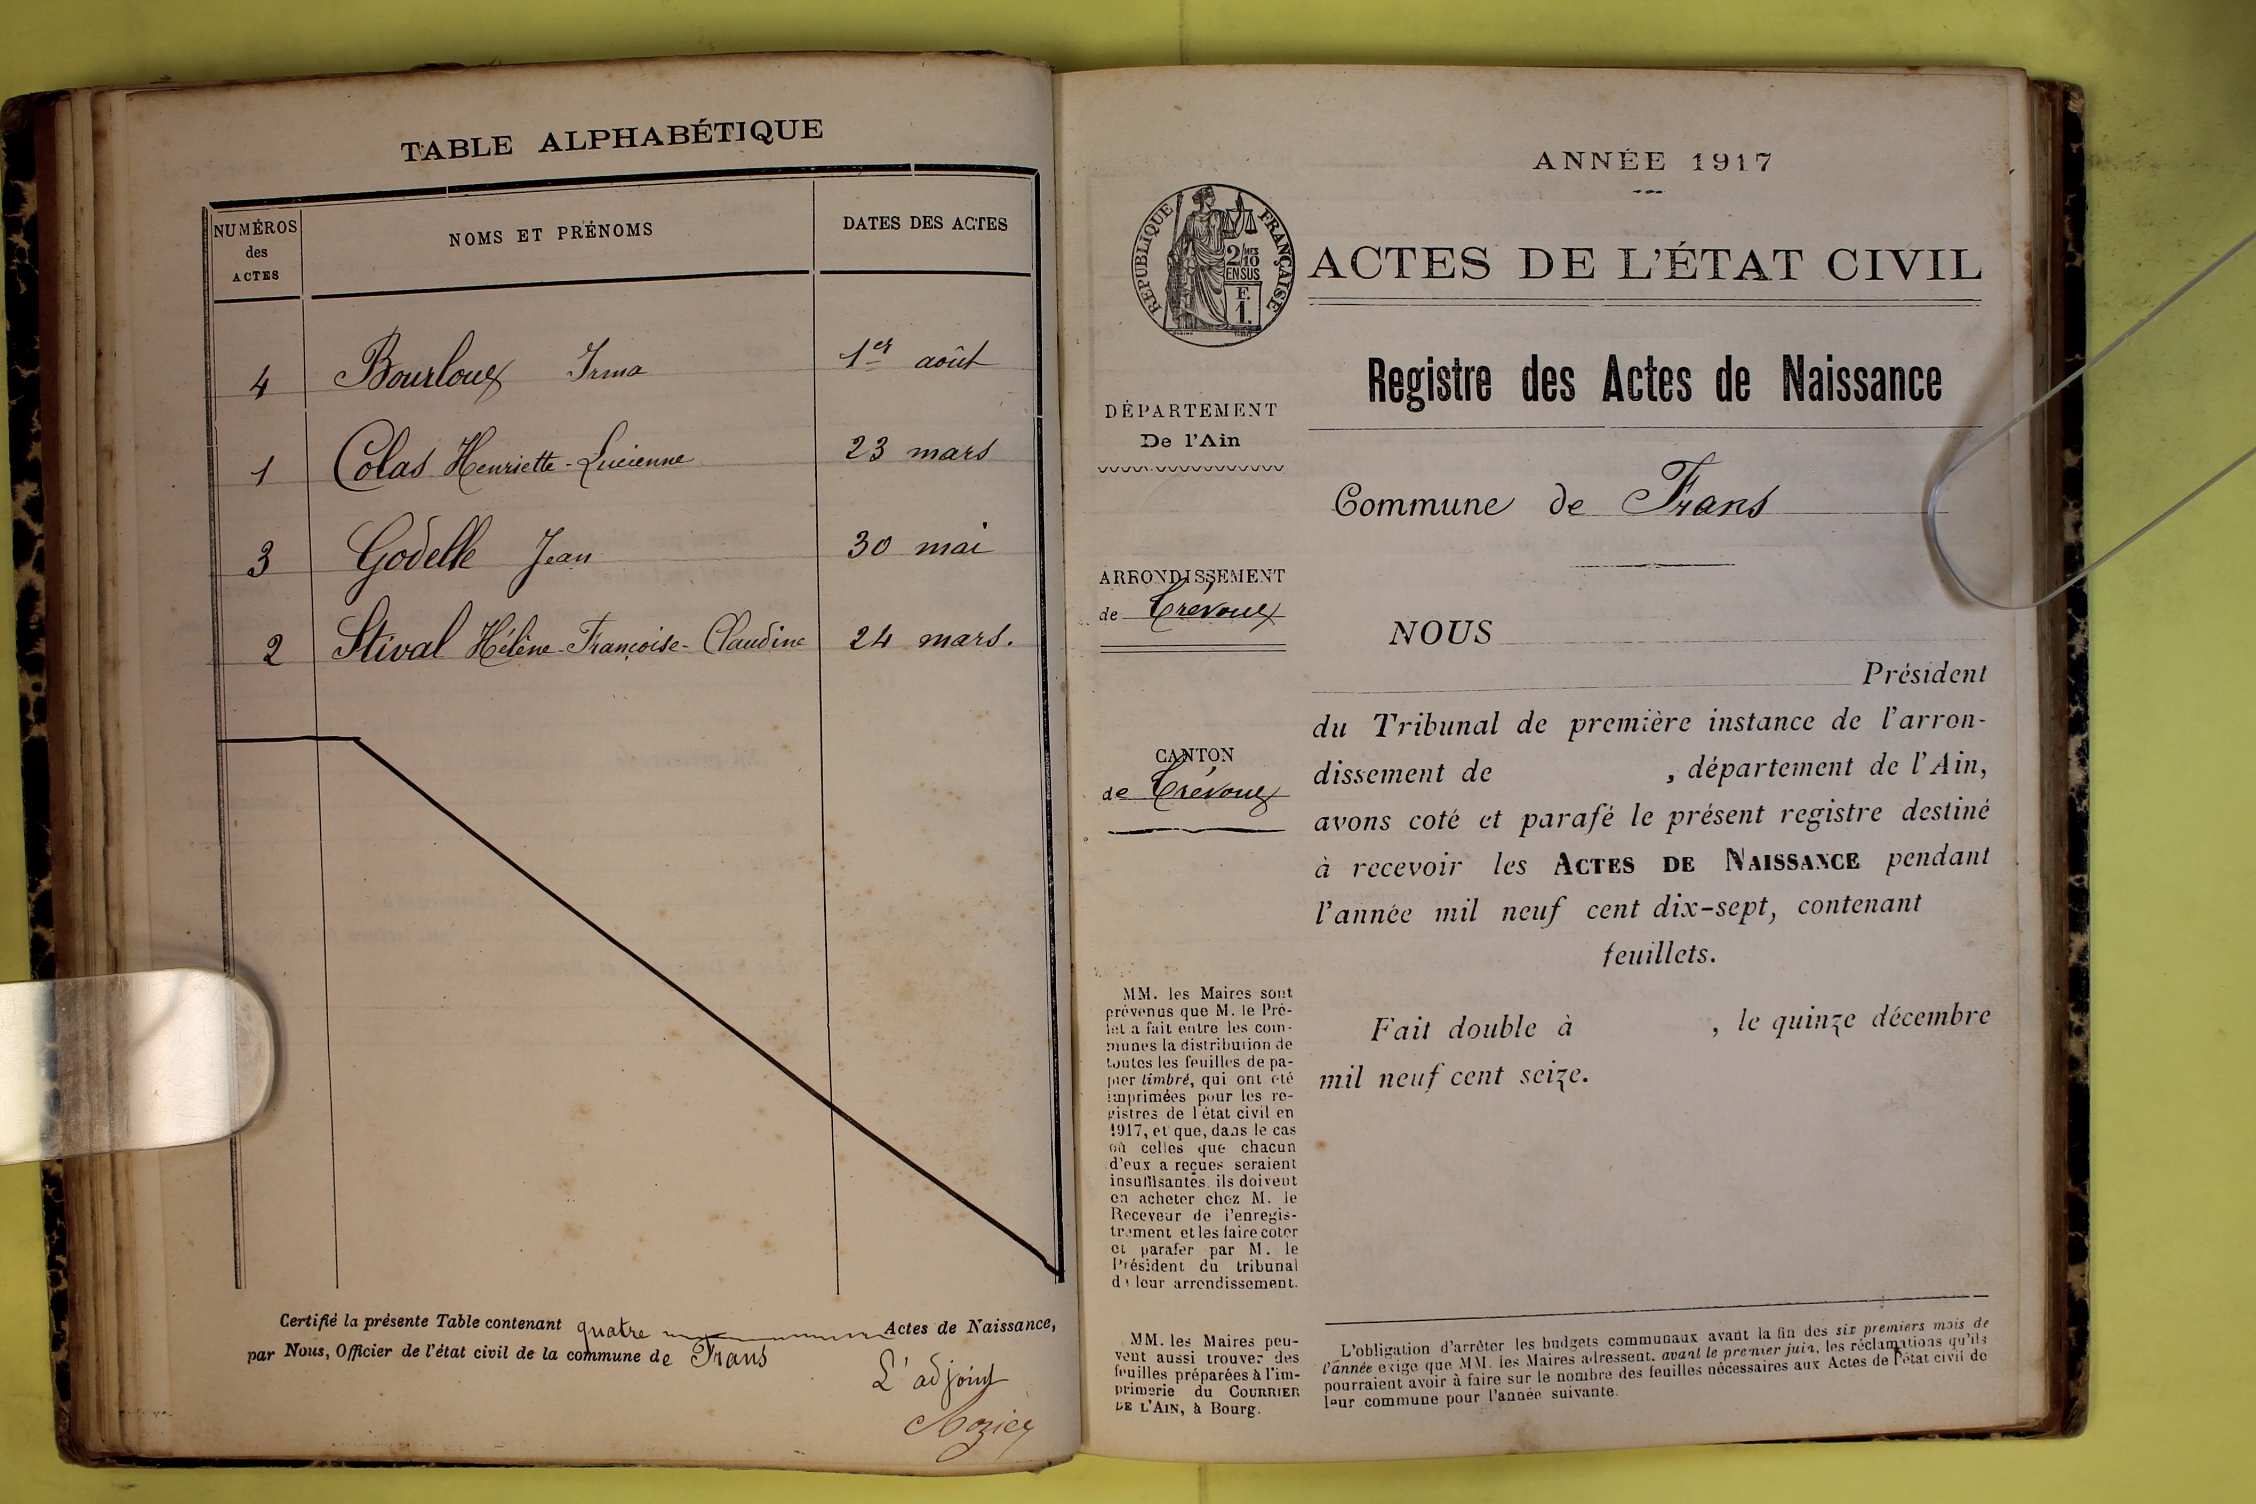 TABLE ALPHABÉTIQUE
NUMÉROS
des
ACTES
NOMS ET PRÉNOMS
DATES DES ACTES
4 Bourloux Irma 1er août
1 Colas Henriette-Lucienne 23 mars
3 Godelle Jean 30 mai
2 Stival Hélène-Françoise-Claudine 24 mars.
Certifié la présente Table contenant quatre Actes de Naissance,
par Nous, Officier de l'état civil de la commune de Frans
L'adjoint
ANNÉE 1917
RÉPUBLIQUE FRANÇAISE
2/10
EN SUS
F.
1.
ACTES DE L'ÉTAT CIVIL
Registre des Actes de Naissance
DÉPARTEMENT
De l'Ain
Commune de Frans
ARRONDISSEMENT
de Trévoux
CANTON
de Trévoux
NOUS
Président
du Tribunal de première instance de l'arron-
dissement de , département de l'Ain,
avons coté et parafé le présent registre destiné
à recevoir les ACTES DE NAISSANCE pendant
l'année mil neuf cent dix-sept, contenant
feuillets.
Fait double à , le quinze décembre
mil neuf cent seize.
MM. les Maires sont
prévenus que M. le Pré-
fet a fait entre les com-
munes la distribution de
toutes les feuilles de pa-
pier timbré, qui ont été
imprimées pour les re-
gistres de l'état civil en
1917, et que, dans le cas
où celles que chacun
d'eux a reçues seraient
insuffisantes, ils doivent
en acheter chez M. le
Receveur de l'enregis-
trement et les faire coter
et parafer par M. le
Président du tribunal
de leur arrondissement.
MM. les Maires peu-
vent aussi trouver des
feuilles préparées à l'im-
primerie du COURRIER
DE L'AIN, à Bourg.
L'obligation d'arrêter les budgets communaux avant la fin des six premiers mois de
l'année exige que MM. les Maires adressent, avant le premier juin, les réclamations qu'ils
pourraient avoir à faire sur le nombre des feuilles nécessaires aux Actes de l'état civil de
leur commune pour l'année suivante.